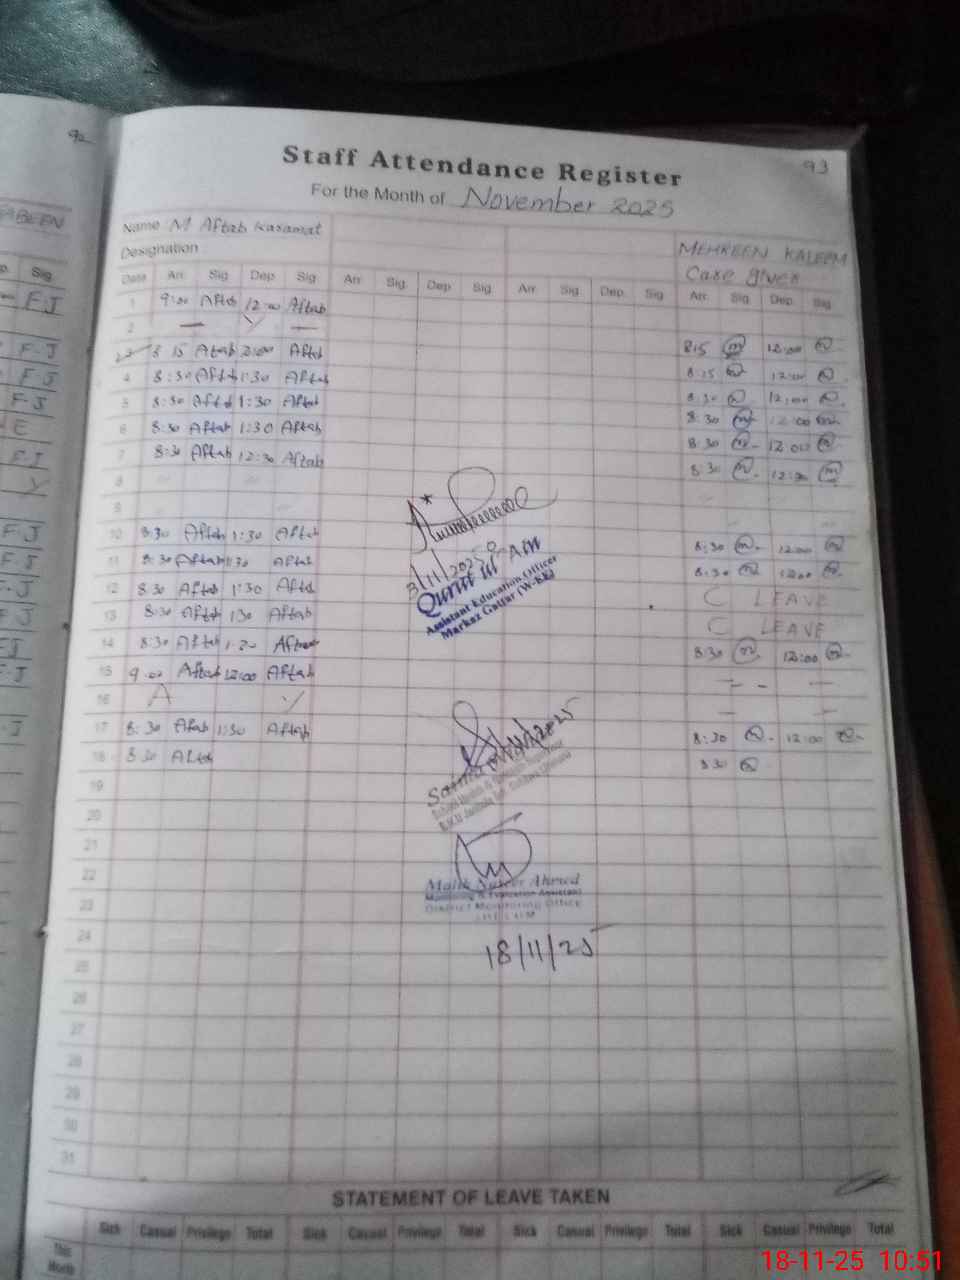 92
93
Staff Attendance Register
For the Month of November 2025
Name M Aftab Karamat
Designation
MEHREEN KALEEM
Care giver
Date Arr. Sig. Dep. Sig. Arr. Sig. Dep. Sig. Arr. Sig. Dep. Sig. Arr. Sig. Dep. Sig.
1 9:00 Aftab 12:00 Aftab
2
3 8 15 Aftab 2:00 Aftab 8:15 12:00
4 8:30 Aftab 1:30 Aftab 8:15 12:00
5 8:30 Aftab 1:30 Aftab 8:30 12:00
6 8:30 Aftab 1:30 Aftab 8:30 12:00
7 8:30 Aftab 12:30 Aftab 8:30 12:00
8 8:30
9
10 8:30 Aftab 1:30 Aftab 8:30 12:00
11 8:30 Aftab 1:30 Aftab 8:30 12:00
12 8:30 Aftab 1:30 Aftab C LEAVE
13 8:30 Aftab 1:30 Aftab C LEAVE
14 8:30 Aftab 8:30 12:00
15 9:00 Aftab 12:00 Aftab
16
17 8:30 Aftab 1:30 Aftab 8:30 12:00
18 8:30 Aftab 8:30
19
20
21
22
23
24
25
26
27
28
29
30
31
3/11/2025
Qurat ul Ain
Assistant Education Officer
Markaz Gattar (W-EE)
Malik Naseer Ahmed
Monitoring & Evaluation Assistant
District Monitoring Office
JHELUM
18/11/25
STATEMENT OF LEAVE TAKEN
Sick Casual Privilege Total Sick Casual Privilege Total Sick Casual Privilege Total Sick Casual Privilege Total
This
Month
18-11-25 10:51